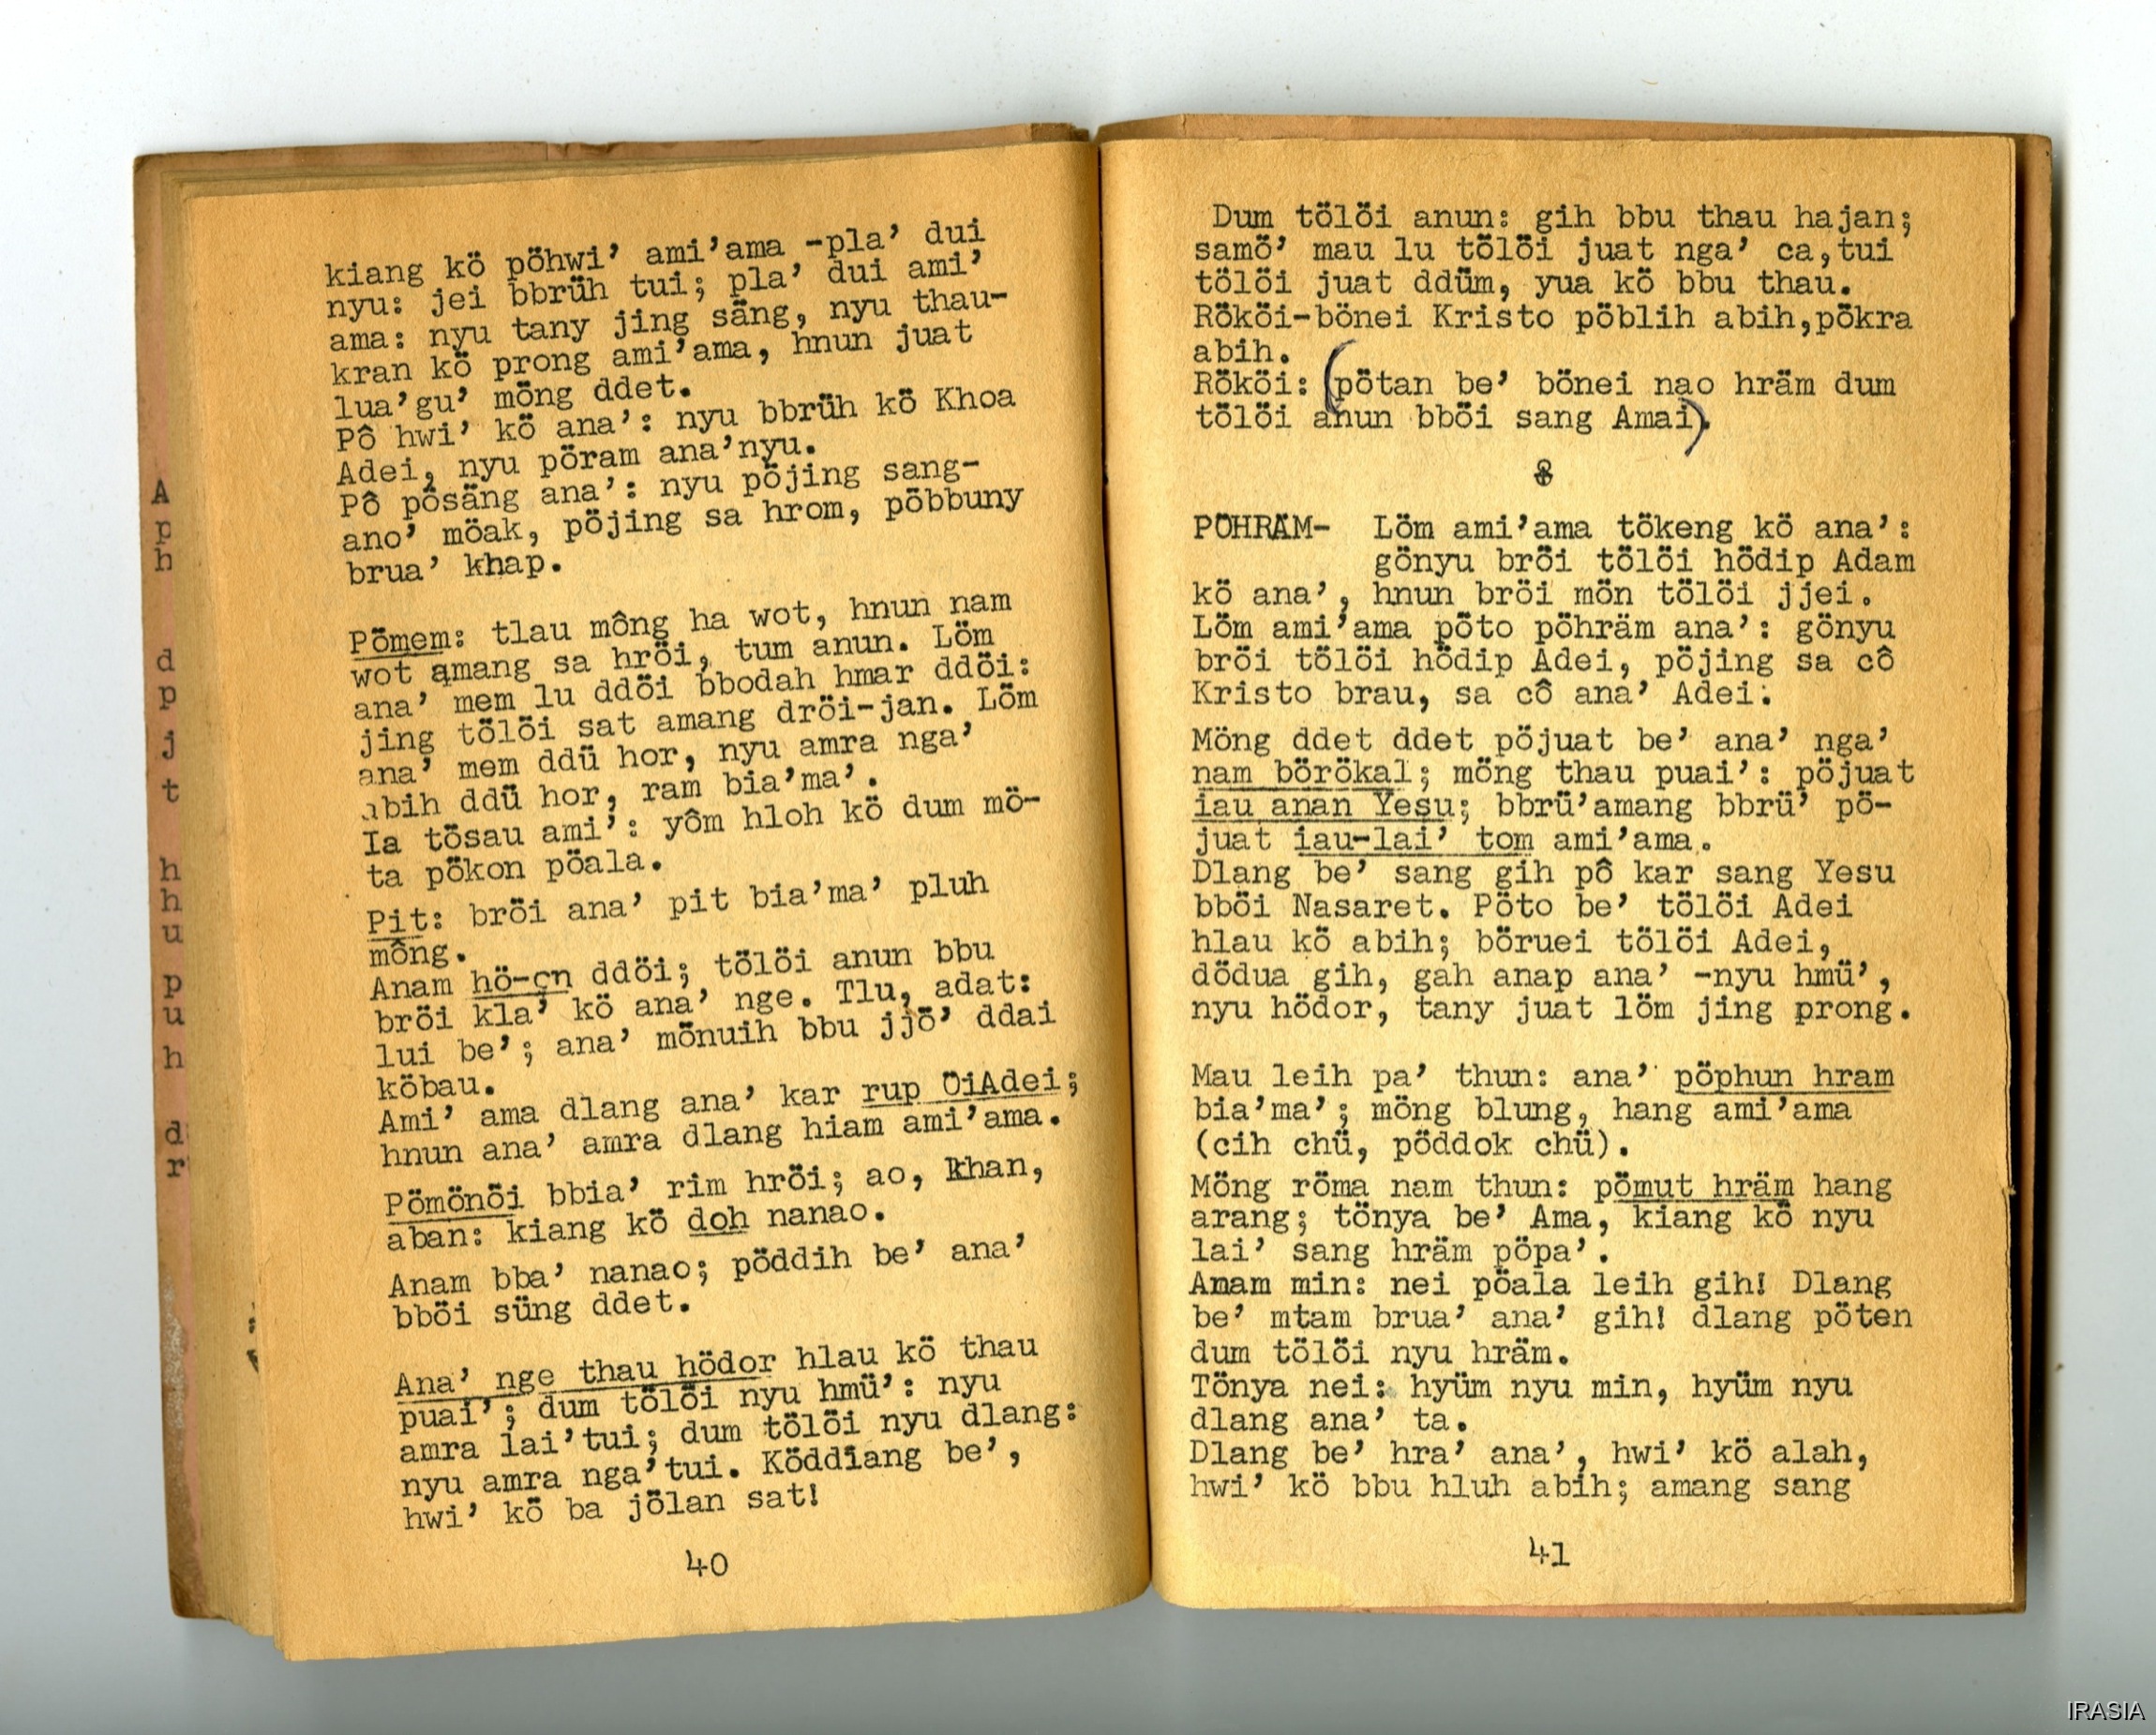 kiang kö pöhwi’ ami’ama -pla’ dui
nyu: jei bbrüh tui; pla’ dui ami’
ama: nyu tany jing säng, nyu thau-
kran kö prong ami’ama, hnun juat
lua’gu’ möng ddet.
Pô hwi’ kö ana’: nyu bbrüh kö Khoa
Adei, nyu pöram ana’nyu.
Pô pösäng ana’: nyu pöjing sang-
ano’ möak, pöjing sa hrom, pöbbuny
brua’ khap.
Pömem: tlau mông ha wot, hnun nam
wot amang sa hröi, tum anun. Löm
ana’ mem lu ddöi bbodah hmar ddöi:
jing tölöi sat amang dröi-jan. Löm
ana’ mem ddü hor, nyu amra nga’
abih ddü hor, ram bia’ma’.
Ia tösau ami’: yôm hloh kö dum mö-
ta pökon pöala.
Pit: bröi ana’ pit bia’ma’ pluh
mông.
Anam hö-cn ddöi; tölöi anun bbu
bröi kla’ kö ana’ nge. Tlu, adat:
lui be’; ana’ mönuih bbu jjö’ ddai
köbau.
Ami’ ama dlang ana’ kar rup ÖiAdei;
hnun ana’ amra dlang hiam ami’ama.
Pömönöi bbia’ rim hröi; ao, khan,
aban: kiang kö doh nanao.
Anam bba’ nanao; pöddih be’ ana’
bböi süng ddet.
Ana’ nge thau hödor hlau kö thau
puai’; dum tölöi nyu hmü’: nyu
amra lai’tui; dum tölöi nyu dlang:
nyu amra nga’tui. Köddiang be’,
hwi’ kö ba jölan sat!
40
A
p
h
d
p
j
t
h
h
u
p
u
h
d
r
Dum tölöi anun: gih bbu thau hajan;
samö’ mau lu tölöi juat nga’ ca,tui
tölöi juat ddüm, yua kö bbu thau.
Rököi-bönei Kristo pöblih abih,pökra
abih.
Rököi: (pötan be’ bönei nao hräm dum
tölöi anun bböi sang Amai).
PÖHRÄM- Löm ami’ama tökeng kö ana’:
gönyu bröi tölöi hödip Adam
kö ana’, hnun bröi mön tölöi jjei.
Löm ami’ama pöto pöhräm ana’: gönyu
bröi tölöi hödip Adei, pöjing sa cô
Kristo brau, sa cô ana’ Adei.
Möng ddet ddet pöjuat be’ ana’ nga’
nam börökal; möng thau puai’: pöjuat
iau anan Yesu; bbrü’amang bbrü’ pö-
juat iau-lai’ tom ami’ama.
Dlang be’ sang gih pô kar sang Yesu
bböi Nasaret. Pöto be’ tölöi Adei
hlau kö abih; böruei tölöi Adei,
dödua gih, gah anap ana’ -nyu hmü’,
nyu hödor, tany juat löm jing prong.
Mau leih pa’ thun: ana’ pöphun hram
bia’ma’; möng blung, hang ami’ama
(cih chü, pöddok chü).
Möng röma nam thun: pömut hräm hang
arang; tönya be’ Ama, kiang kö nyu
lai’ sang hräm pöpa’.
Amam min: nei pöala leih gih! Dlang
be’ mtam brua’ ana’ gih! dlang pöten
dum tölöi nyu hräm.
Tönya nei: hyüm nyu min, hyüm nyu
dlang ana’ ta.
Dlang be’ hra’ ana’, hwi’ kö alah,
hwi’ kö bbu hluh abih; amang sang
41
IRASIA